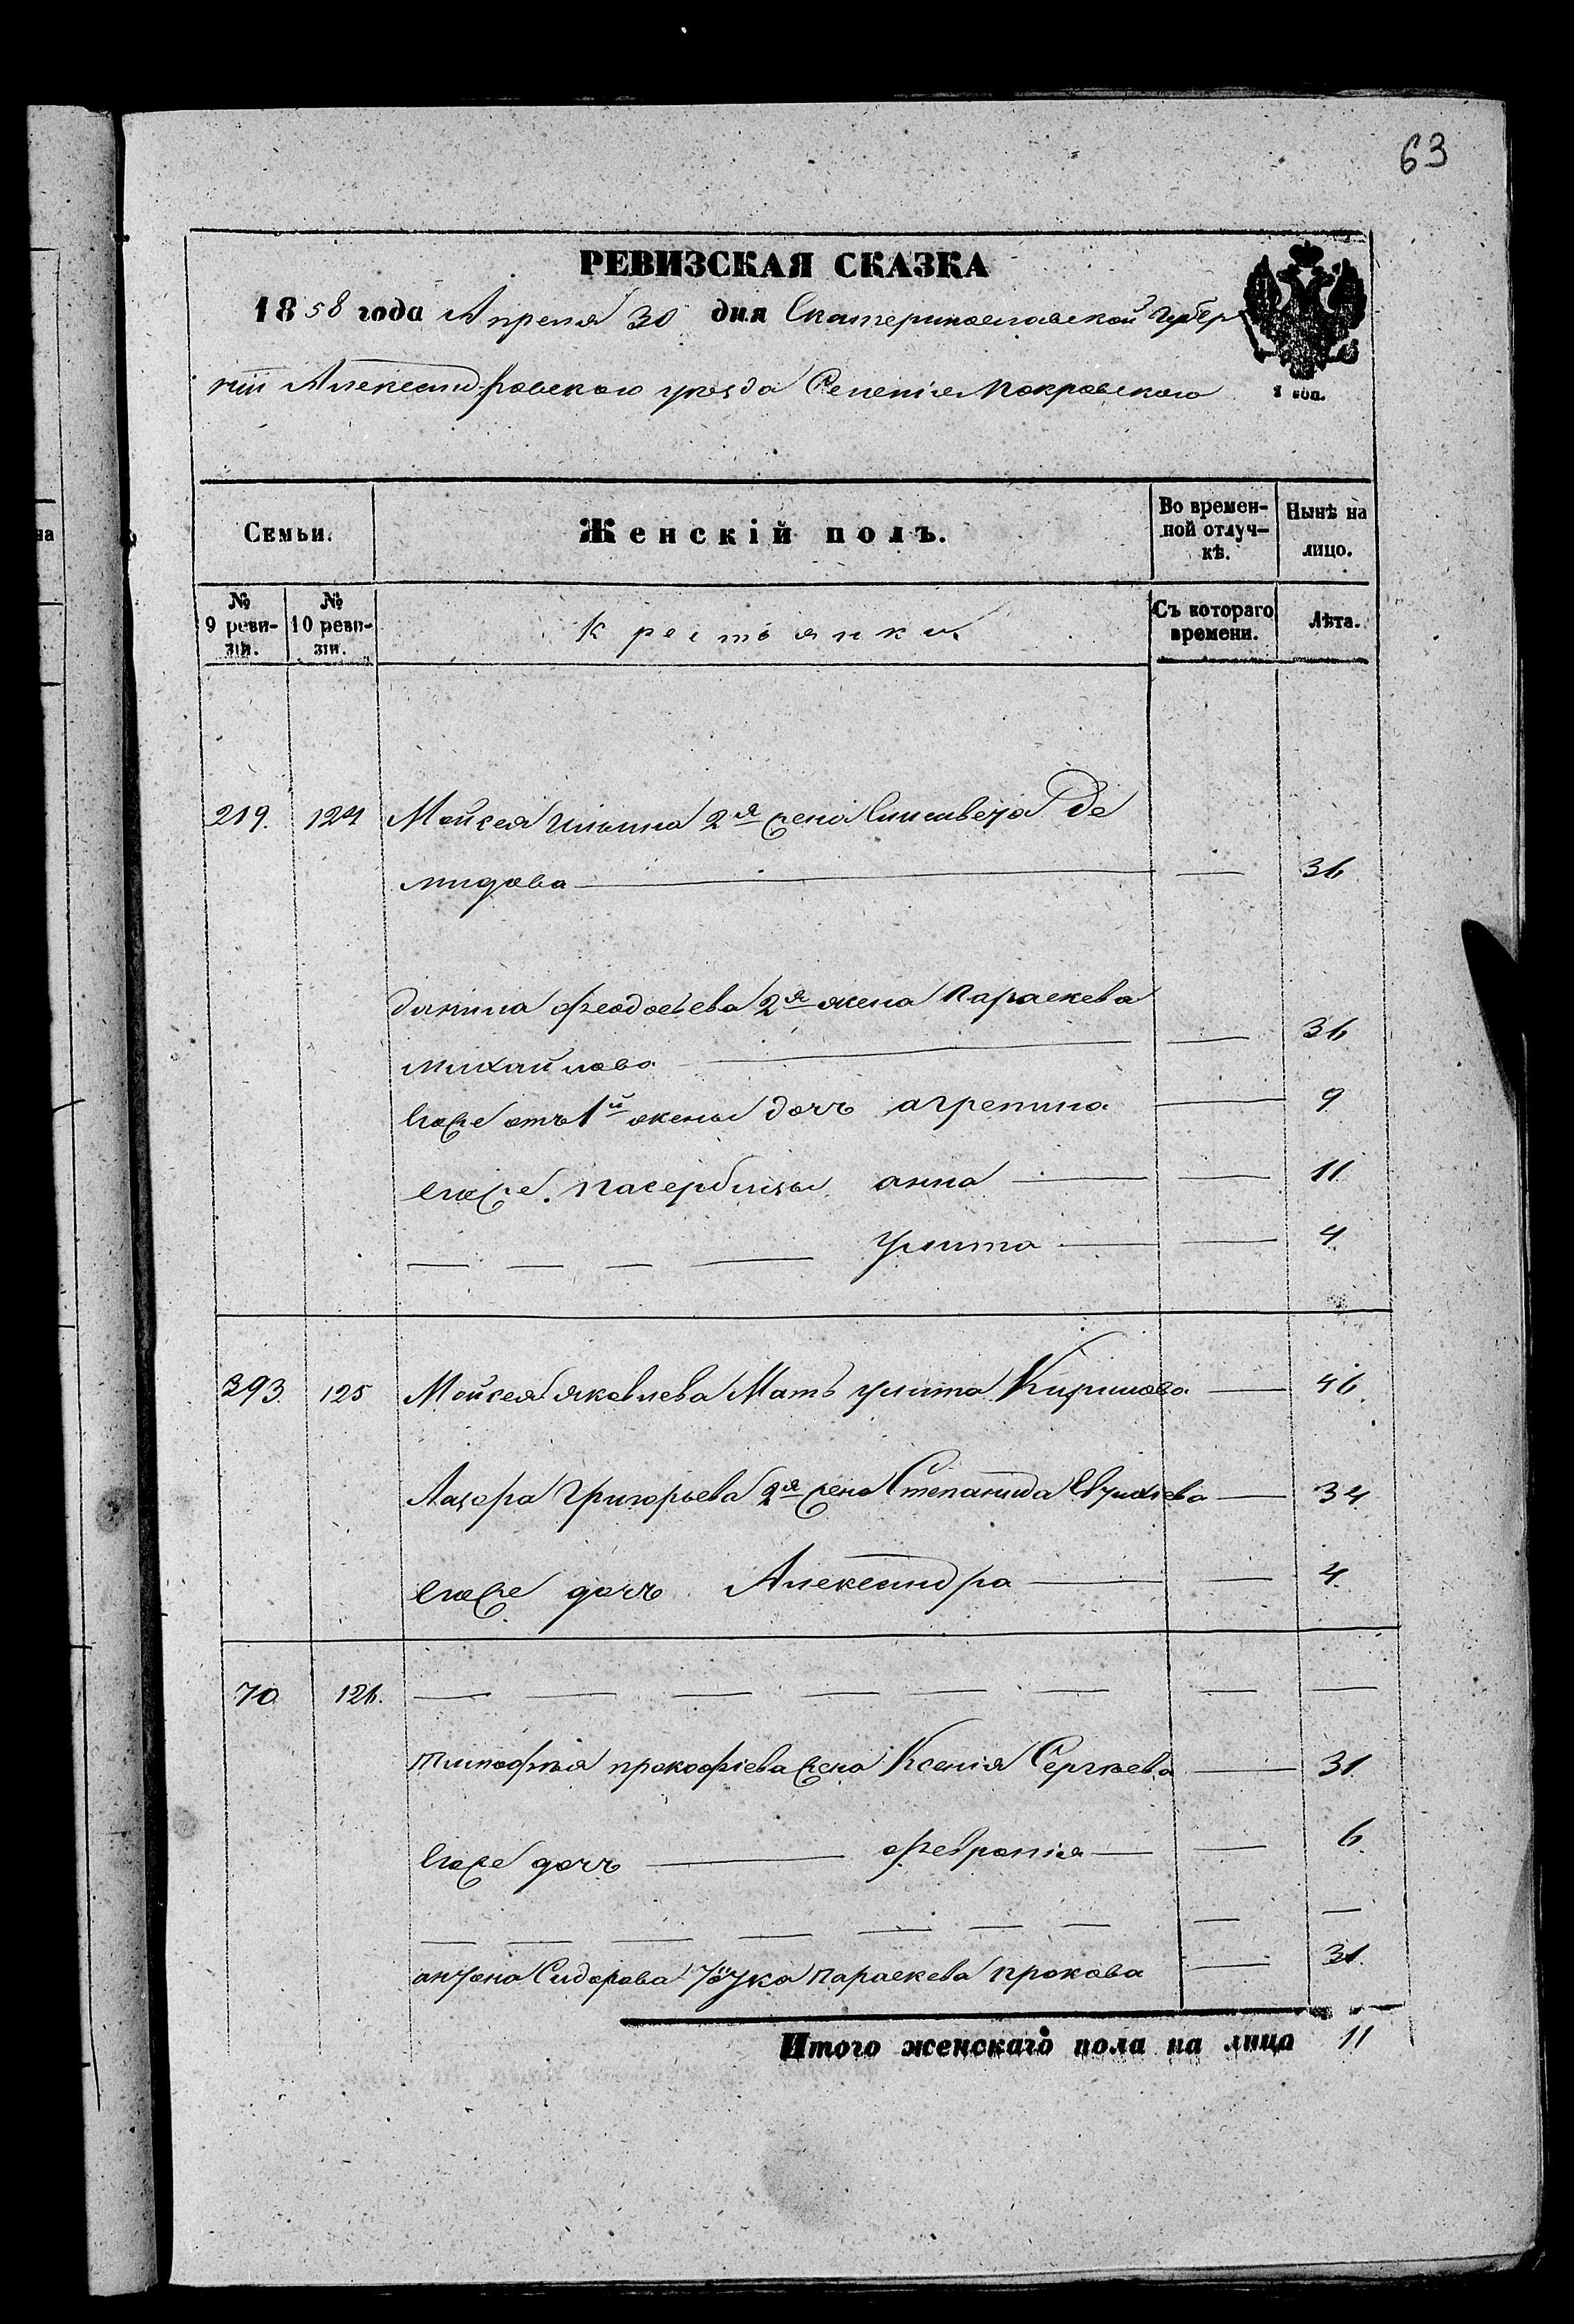 63
РЕВИЗСКАЯ СКАЗКА
1858 года Апреля 30 дня Екатеринославской Губер
ніи Александровскаго уѣзда Селенія Покровскаго
1 коп.
Семьи. Женскій полъ. Во времен-ной отлуч-кѣ. Нынѣ на лицо.
№ 9 реви-зіи. № 10 реви-зіи. Крестьянки. Съ котораго времени. Лѣта.
219. 124 Мойсея Ильина 2я жена Елисавета Де
мидова — — 36
Данила Феодосьева 2я жена Параскева
Михайлова — — 36
Егоже отъ 1й жены дочь Агрепина — 9
Егоже Пасербицы Анна — — 11
— — — — Улита — — 4
393. 125 Мойсея Яковлева Мать Улита Кирилова — 46.
Лазора Григорьева 2я жена Степанида — 34
Егоже дочь Александра — — 4.
70 126. — — — — — — — —
Тимофея Прокофіева жена Ксенія Сергѣева — 31.
Егоже дочь — Февронія — — 6.
— — — — — — — — —
Антона Сидорова Параскева — 31.
Итого женскаго пола на лицо 11
на